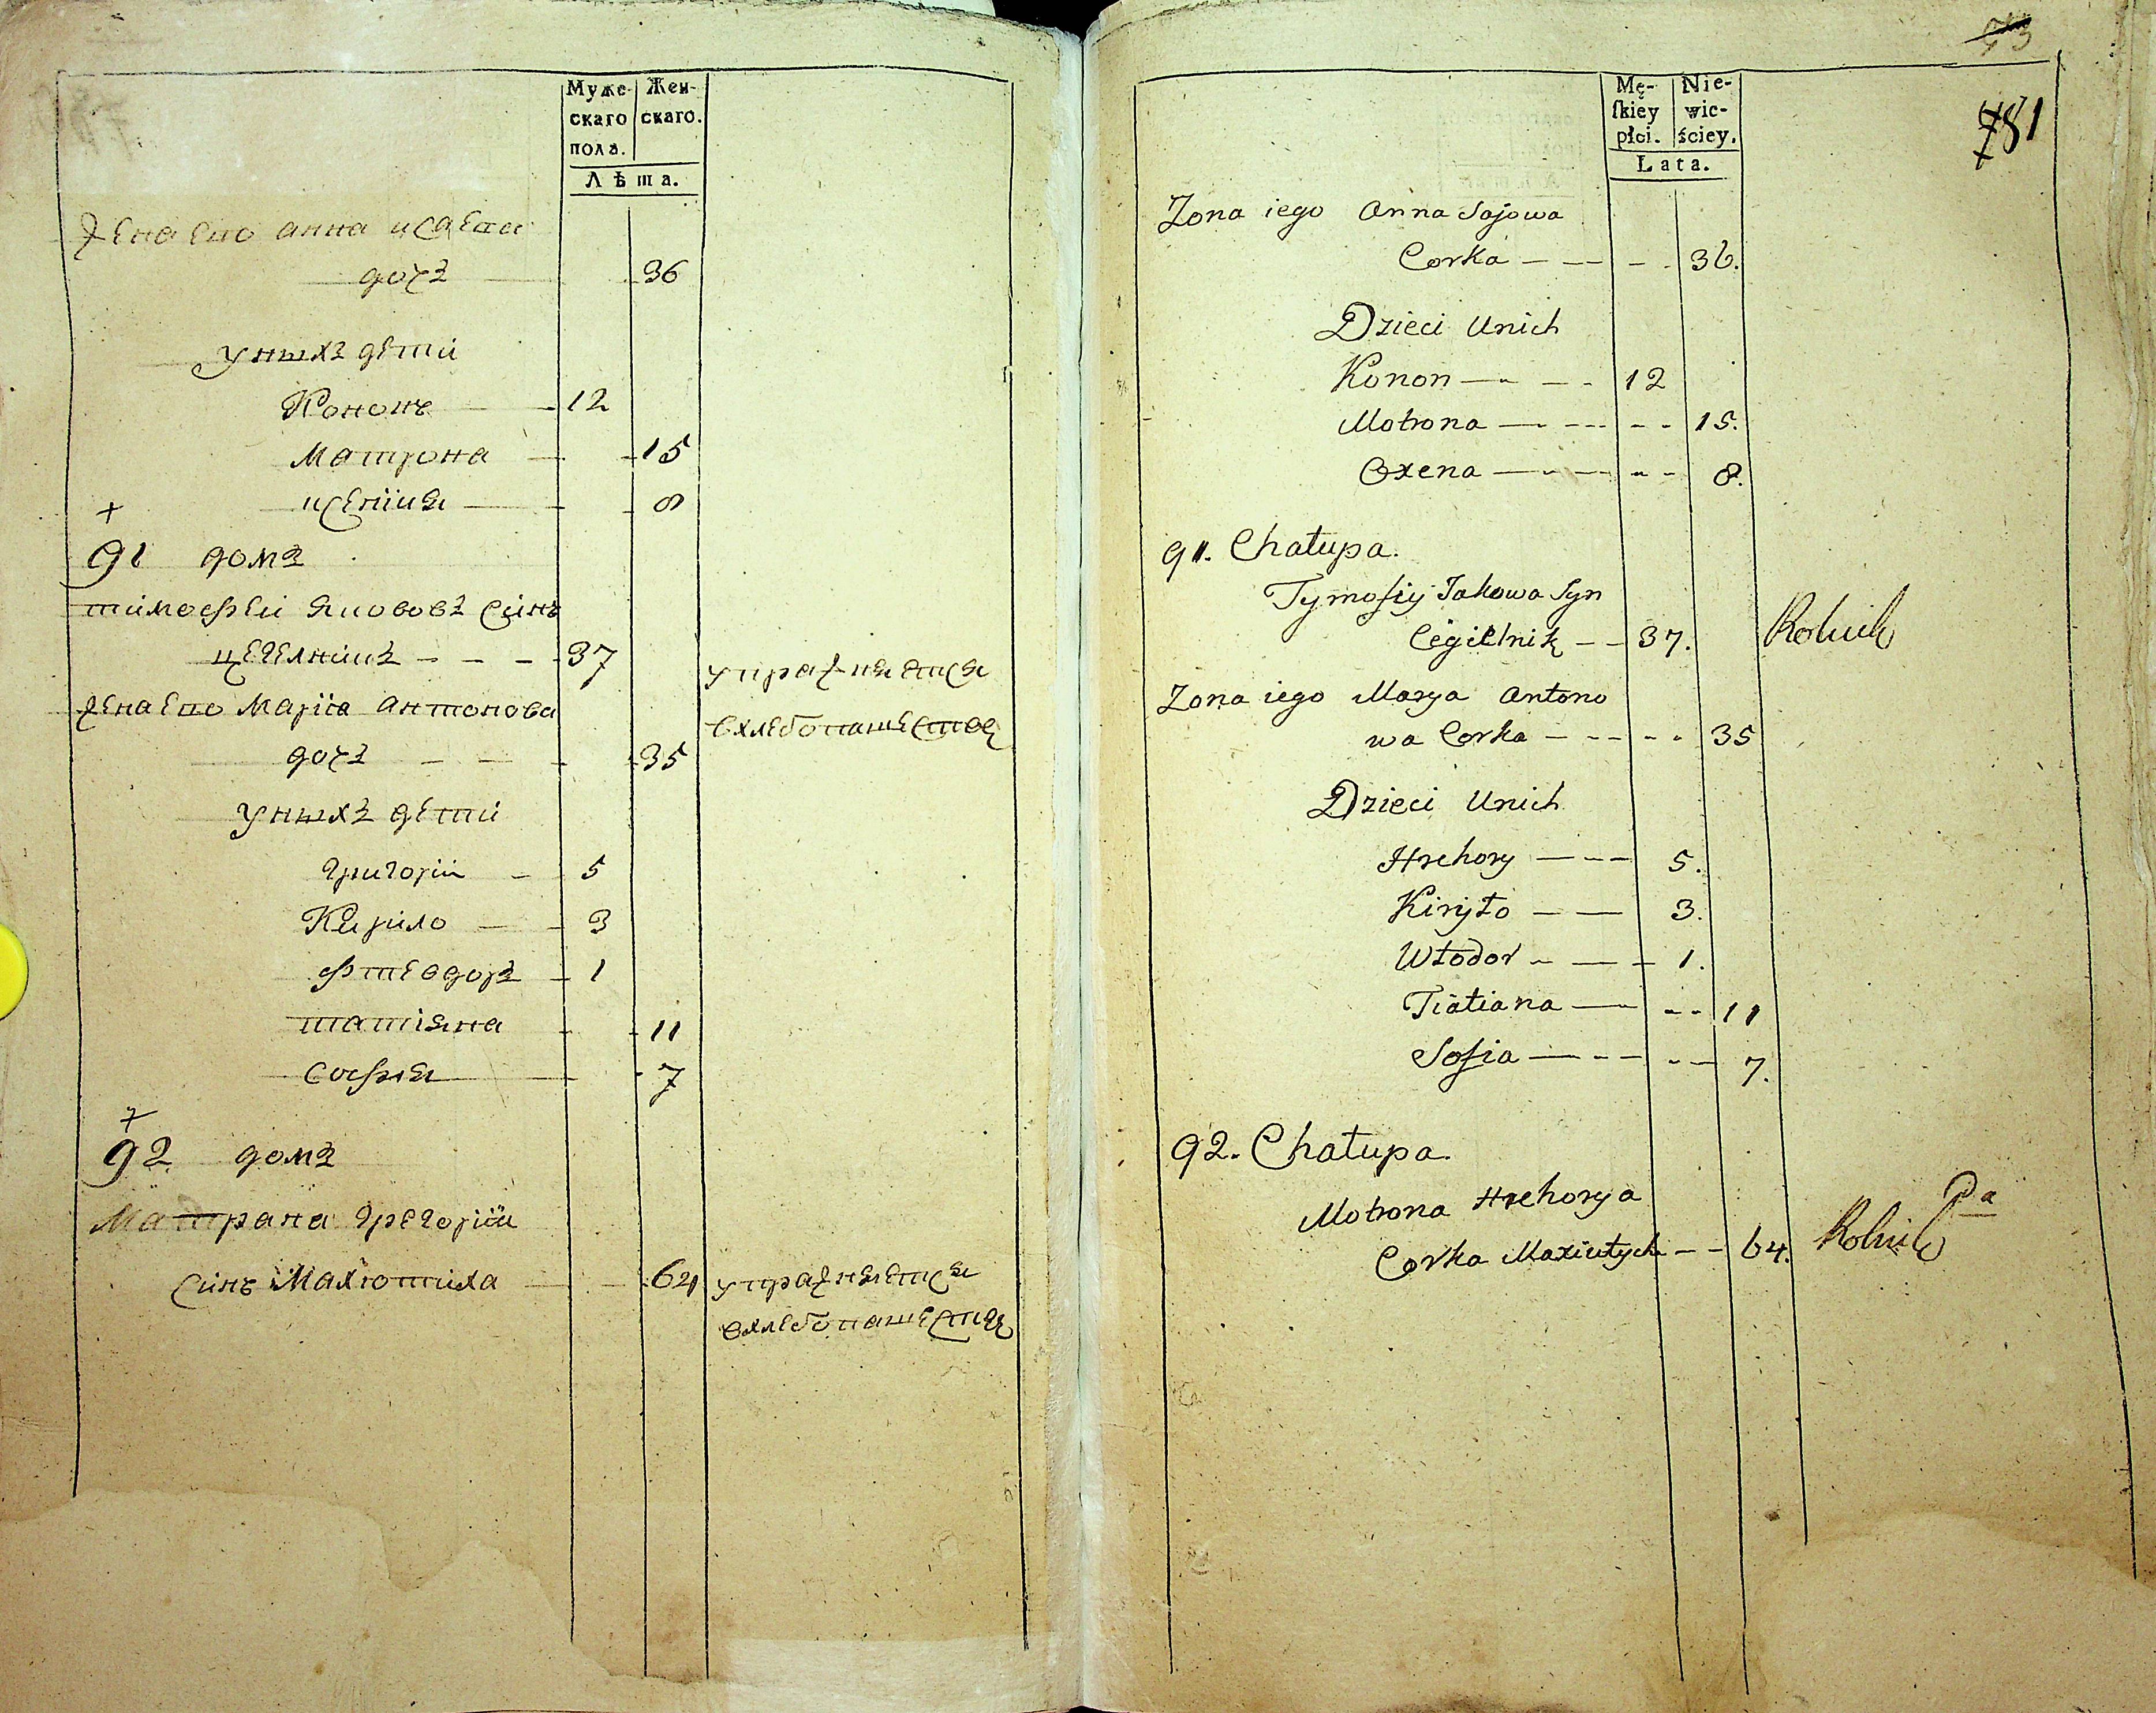 Муже- Жен-
скаго скаго.
пола.
Лѣта.
Жена его анна исаева
дочъ 36
унихъ дети
Кононъ 12
Матрона 15
ксения 8
+
91 домъ
тимофеи якововъ синъ
цегелникъ - - - 37 упражняется
Жена его Мариа антонова вхлебопашестве
дочъ - - 35
унихъ дети
григории - 5
Кирило - 3
фтеодоръ - 1
татияна - 11
софия - 7
+
92 домъ
Матрана грегории
синъ Махютиха 64 упражняется
вхлебопашестве
73
781
Mę- Nie-
ſkiey wie-
płci. ściey.
Lata.
Zona iego Anna Sajowa
Corka - - - - 36.
Dzieci Unich
Konon - - - 12
Motrona - - - - 15.
Oxena - - - - 8.
91. Chałupa.
Tymofiy Jakowa Syn
Cegielnik - - 37. Rolnik
Zona iego Marya Antono
wa Corka - - - - 35
Dzieci Unich
Hrehory - - - 5.
Kiryło - - 3.
Wtodor - - - 1.
Tiatiana - - - 11
Sofia - - - - 7.
92. Chałupa.
Motrona Hrehorya
Corka Maxiutycha - - 64. Rolnik